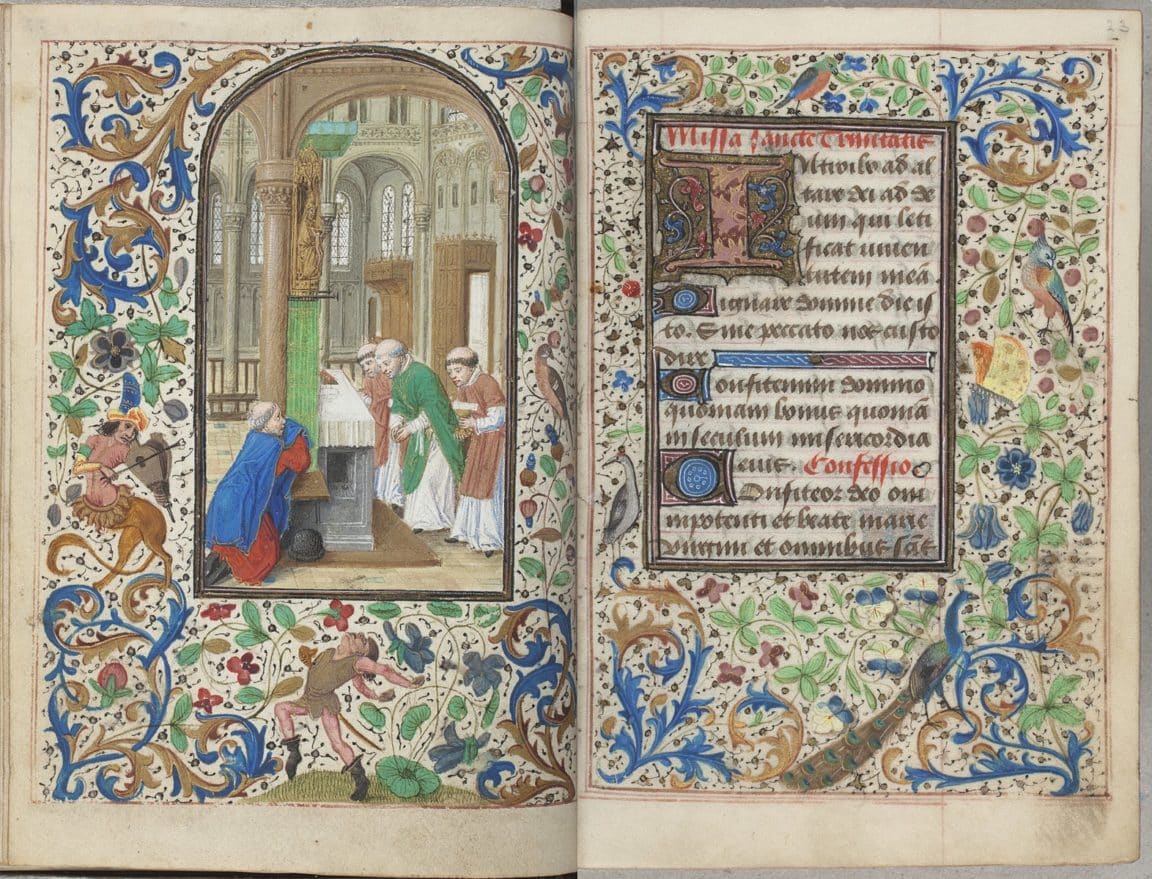 23
Missa sancte Trinitatis
Introibo ad al
tare dei ad de
um qui leti
ficat iuven
tutem mea
Dignare domine die is
to. Sine peccato nos custo
dire
Confitemini domino
quoniam bonus quonia
in seculum misericordia
eius. Confessio
Confiteor deo om
nipotenti et beate marie
virgini et omnibus sātis